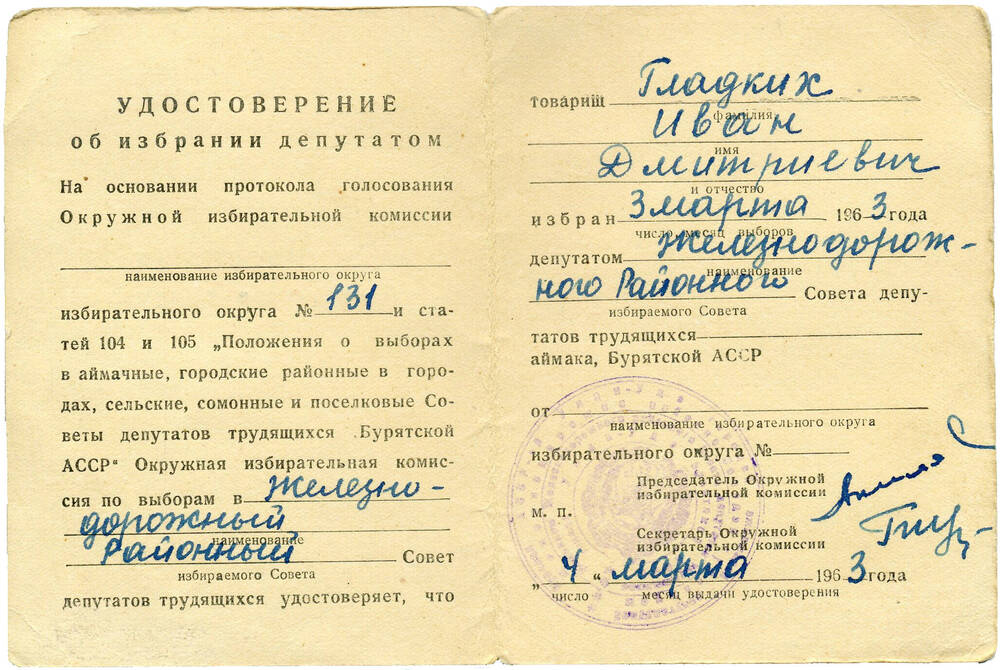 УДОСТОВЕРЕНИЕ
об избрании депутатом
На основании протокола голосования
Окружной избирательной комиссии
наименование избирательного округа
избирательного округа № 131 и ста-
тей 104 и 105 „Положения о выборах
в аймачные, городские районные в горо-
дах, сельские, сомонные и поселковые Со-
веты депутатов трудящихся Бурятской
АССР“ Окружная избирательная комис-
сия по выборам в Железно-
дорожный
наименование
Районный Совет
избираемого Совета
депутатов трудящихся удостоверяет, что
товарищ Гладких
фамилия
Иван
имя
Дмитриевич
и отчество
избран 3 марта 1963 года
число, месяц выборов
депутатом Железнодорож-
наименование
ного Районного Совета депу-
избираемого Совета
татов трудящихся
аймака, Бурятской АССР
от
наименование избирательного округа
избирательного округа №
Председатель Окружной
избирательной комиссии
М. П.
Секретарь Окружной
избирательной комиссии
„4“ марта 1963 года
число месяц выдачи удостоверения